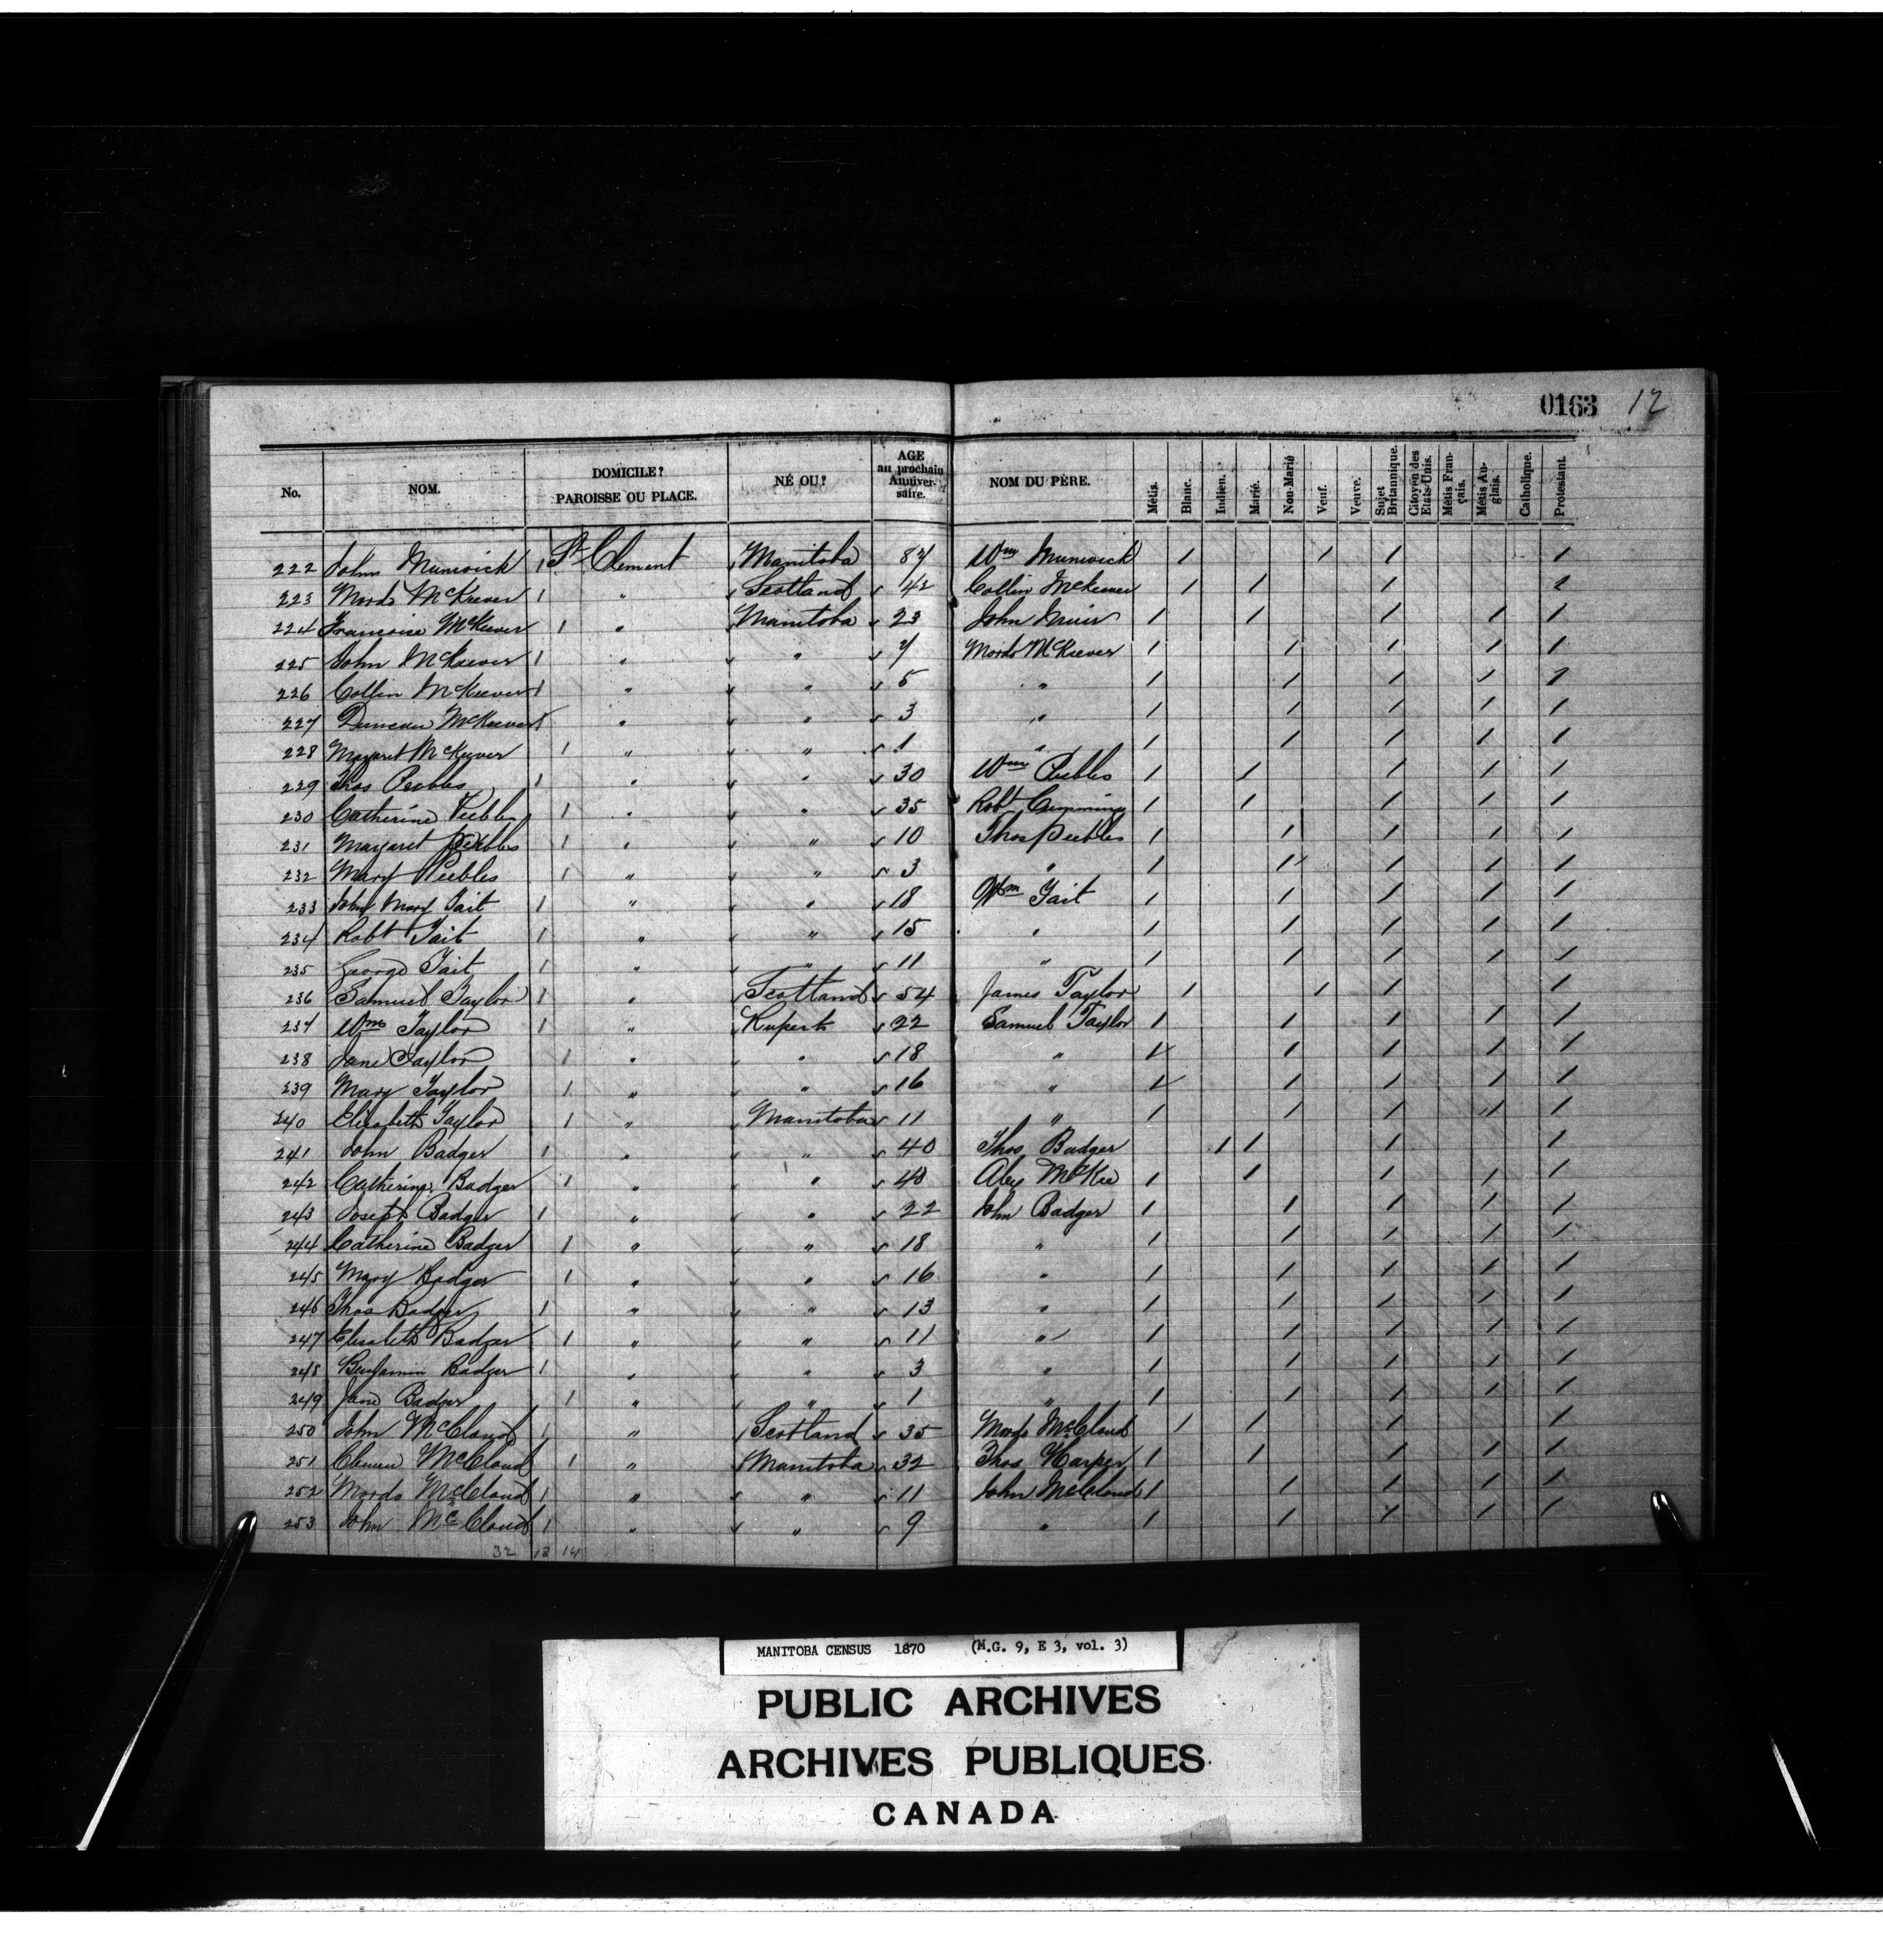 0163 12
No. NOM. DOMICILE? PAROISSE OU PLACE. NÉ OU? AGE au prochain Anniversaire. NOM DU PÈRE. Métis. Blanc. Indien. Marié. Non-Marié Veuf. Veuve. Sujet Britannique. Citoyen des Etats-Unis. Métis Français. Métis Anglais. Catholique. Protestant.
222 John Munwick 1 St Clement Manitoba 87 Wm Munwick 1 1 1 1
223 Mordo McKeever 1 " Scotland 42 Collin McKeever 1 1 1 1
224 Francoise McKeever 1 " Manitoba 23 John Muir 1 1 1 1 1
225 John McKeever 1 " " 7 Mordo McKeever 1 1 1 1 1
226 Collin McKeever 1 " " 5 " 1 1 1 1 1
227 Duncan McKeever 1 " " 3 " 1 1 1 1 1
228 Margaret McKeever 1 " " 1 " 1 1 1 1 1
229 Thos Peebles 1 " " 30 Wm Peebles 1 1 1 1 1
230 Catherine Peebles 1 " " 35 Robt Cumming 1 1 1 1 1
231 Margaret Peebles 1 " " 10 Thos Peebles 1 1 1 1 1
232 Mary Peebles 1 " " 3 " 1 1 1 1 1
233 John Mary Tait 1 " " 18 Wm Tait 1 1 1 1 1
234 Robt Tait 1 " " 15 " 1 1 1 1 1
235 George Tait 1 " " 11 " 1 1 1 1 1
236 Samuel Taylor 1 " Scotland 54 James Taylor 1 1 1 1
237 Wm Taylor 1 " Rupert 22 Samuel Taylor 1 1 1 1 1
238 Jane Taylor 1 " " 18 " 1 1 1 1 1
239 Mary Taylor 1 " " 16 " 1 1 1 1 1
240 Elisabeth Taylor 1 " Manitoba 11 " 1 1 1 1 1
241 John Badger 1 " " 40 Thos Badger 1 1 1 1
242 Catherine Badger 1 " " 40 Alex McKee 1 1 1 1 1
243 Joseph Badger 1 " " 22 John Badger 1 1 1 1 1
244 Catherine Badger 1 " " 18 " 1 1 1 1 1
245 Mary Badger 1 " " 16 " 1 1 1 1 1
246 Thos Badger 1 " " 13 " 1 1 1 1 1
247 Elisabeth Badger 1 " " 11 " 1 1 1 1 1
248 Benjamin Badger 1 " " 3 " 1 1 1 1 1
249 Jane Badger 1 " " 1 " 1 1 1 1 1
250 John McCloud 1 " Scotland 35 Mordo McCloud 1 1 1 1
251 McCloud 1 " Manitoba 32 Thos Harper 1 1 1 1 1
252 Mordo McCloud 1 " " 11 John McCloud 1 1 1 1 1
253 John McCloud 1 " " 9 " 1 1 1 1 1
32 18 14
MANITOBA CENSUS 1870 (M.G. 9, E 3, vol. 3)
PUBLIC ARCHIVES
ARCHIVES PUBLIQUES
CANADA